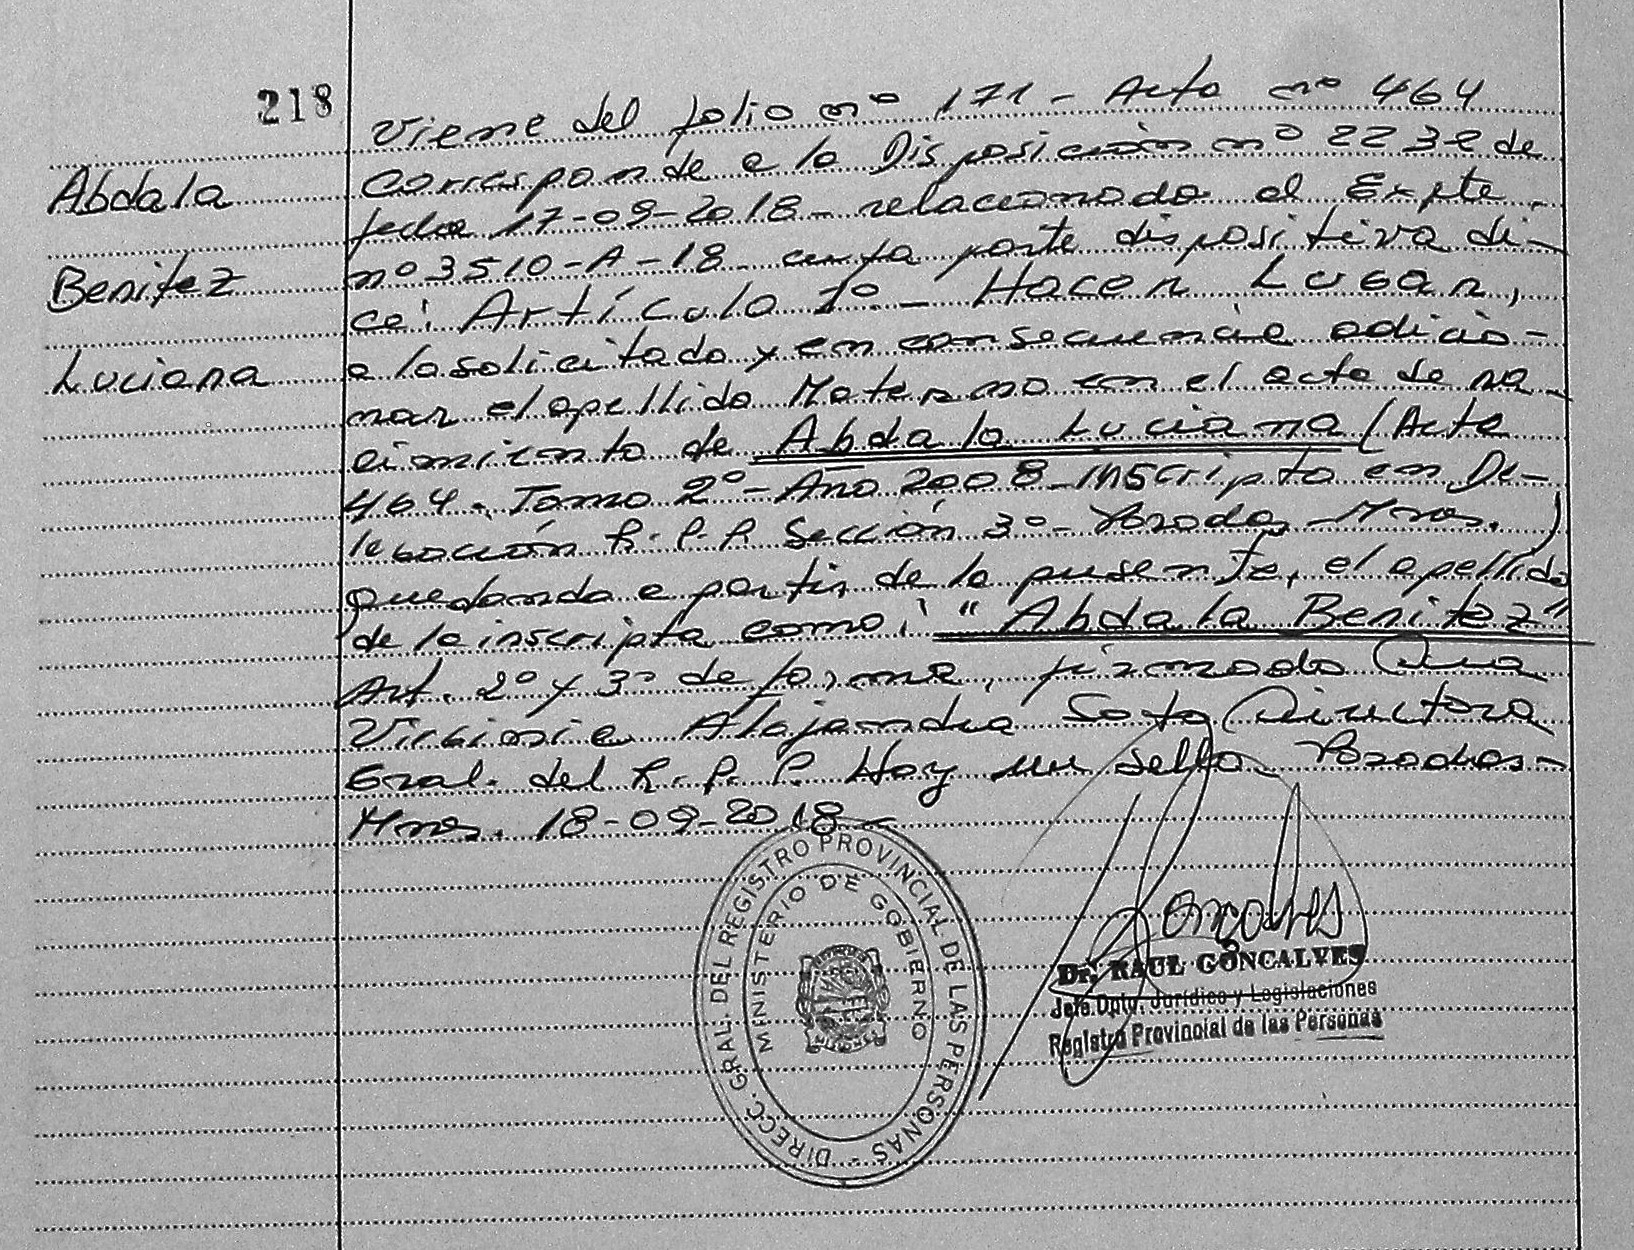 218
Abdala
Benitez
Luciana
Viene del folio nº 171 - Acta nº 464
Corresponde a la Disposición nº 2232 de
fecha 17-09-2018 - relacionado al Expte.
nº 3510-A-18 - cuya parte dispositiva di-
ce: Artículo 1º - HACER LUGAR,
a lo solicitado y en consecuencia adicio-
nar el apellido Materno en el acta de na-
cimiento de Abdala Luciana (Acta
464. Tomo 2º - Año 2008 - inscripta en De-
legación R.P.P. Sección 3º - Posadas Mnes.)
quedando a partir de la presente, el apellido
de la inscripta como: "Abdala Benitez"
Art. 2º y 3º de forma, firmado
Virginia Alejandra Soto Directora
Gral. del R.P.P. Hay un sello. Posadas -
Mnes. 18-09-2018
DIRECC. GRAL. DEL REGISTRO PROVINCIAL DE LAS PERSONAS -
MINISTERIO DE GOBIERNO
Goncalves
Dr. RAUL GONCALVES
Jefe Dpto. Jurídico y Legislaciones
Registro Provincial de las Personas